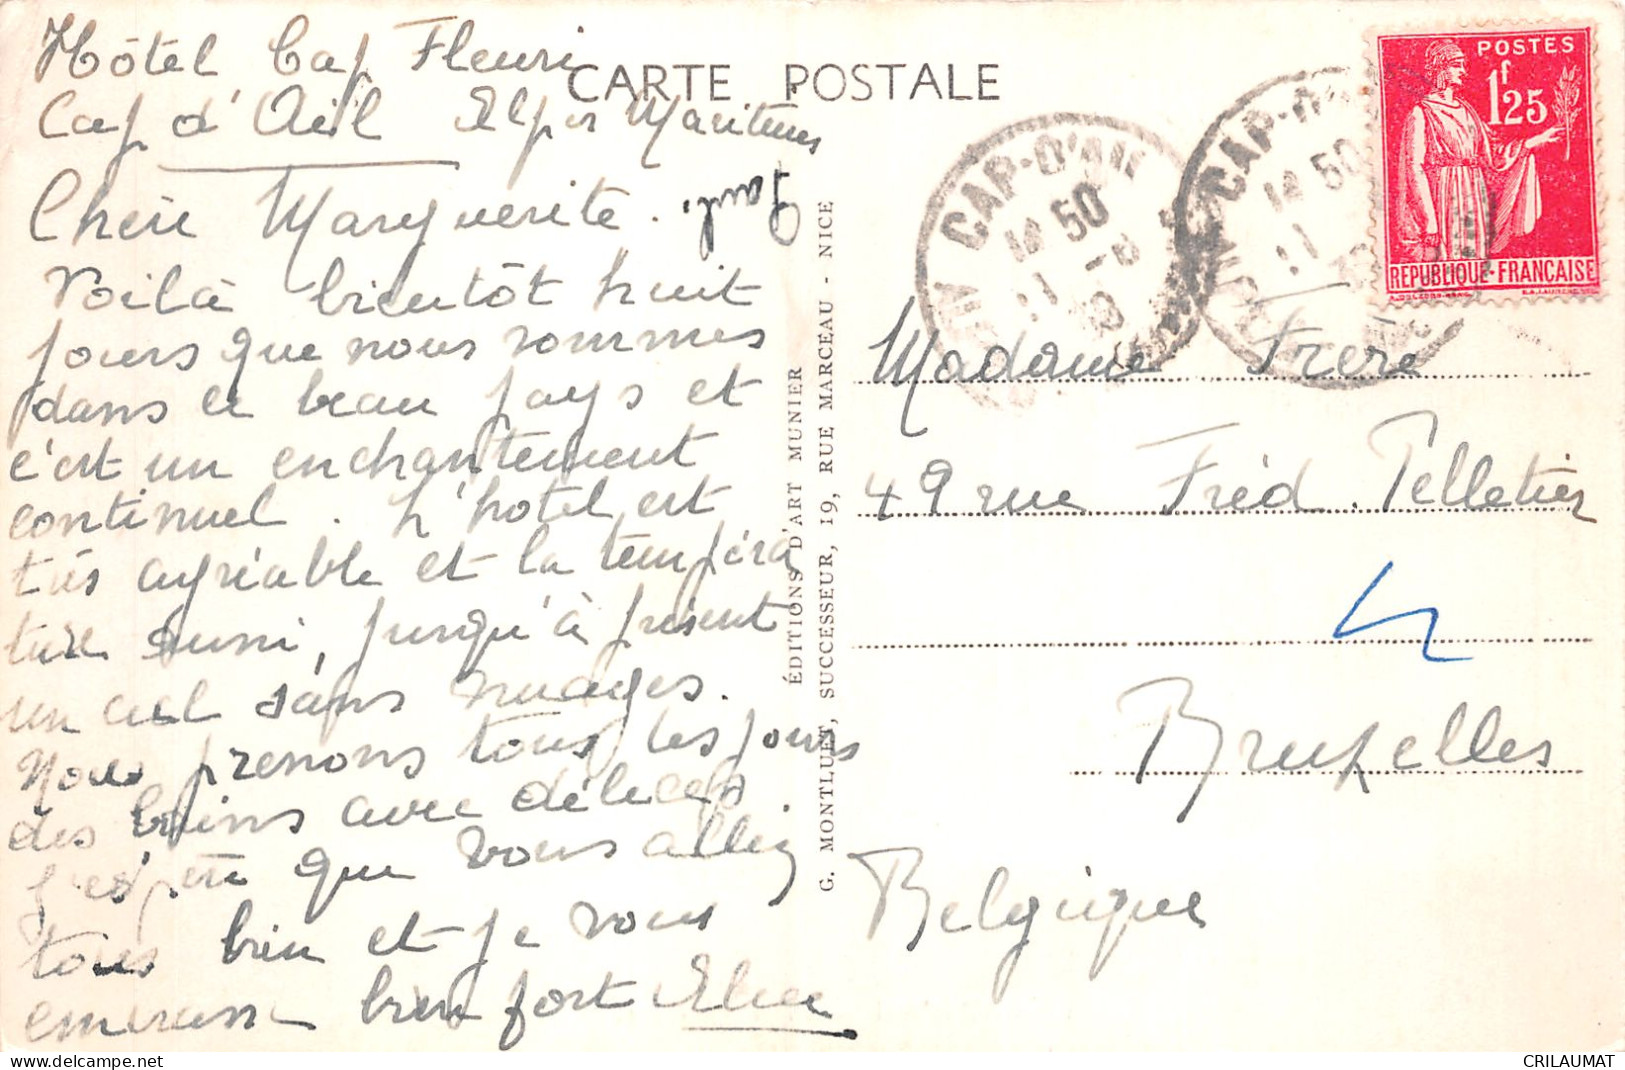 Hôtel Cap Fleuri
Cap d'Ail Alpes Maritimes
Chère Marguerite.
Paul.
Voilà bientôt huit
jours que nous sommes
dans ce beau pays et
c'est un enchantement
continuel. L'hôtel est
très agréable et la tempéra
ture aussi, jusqu'à présent
un ciel sans nuages.
Nous prenons tous les jours
des bains avec délices
J'espère que vous alliez
tous bien et je vous
embrasse bien fort
CARTE POSTALE
ÉDITIONS D'ART MUNIER
G. MONTLUET, SUCCESSEUR, 19, RUE MARCEAU - NICE
CAP-D'AIL
14 50
CAP-D'
14 50
POSTES
1f25
REPUBLIQUE·FRANÇAISE
Madame Frère
49 rue Fréd. Pelletier
Bruxelles
Belgique
CRILAUMAT